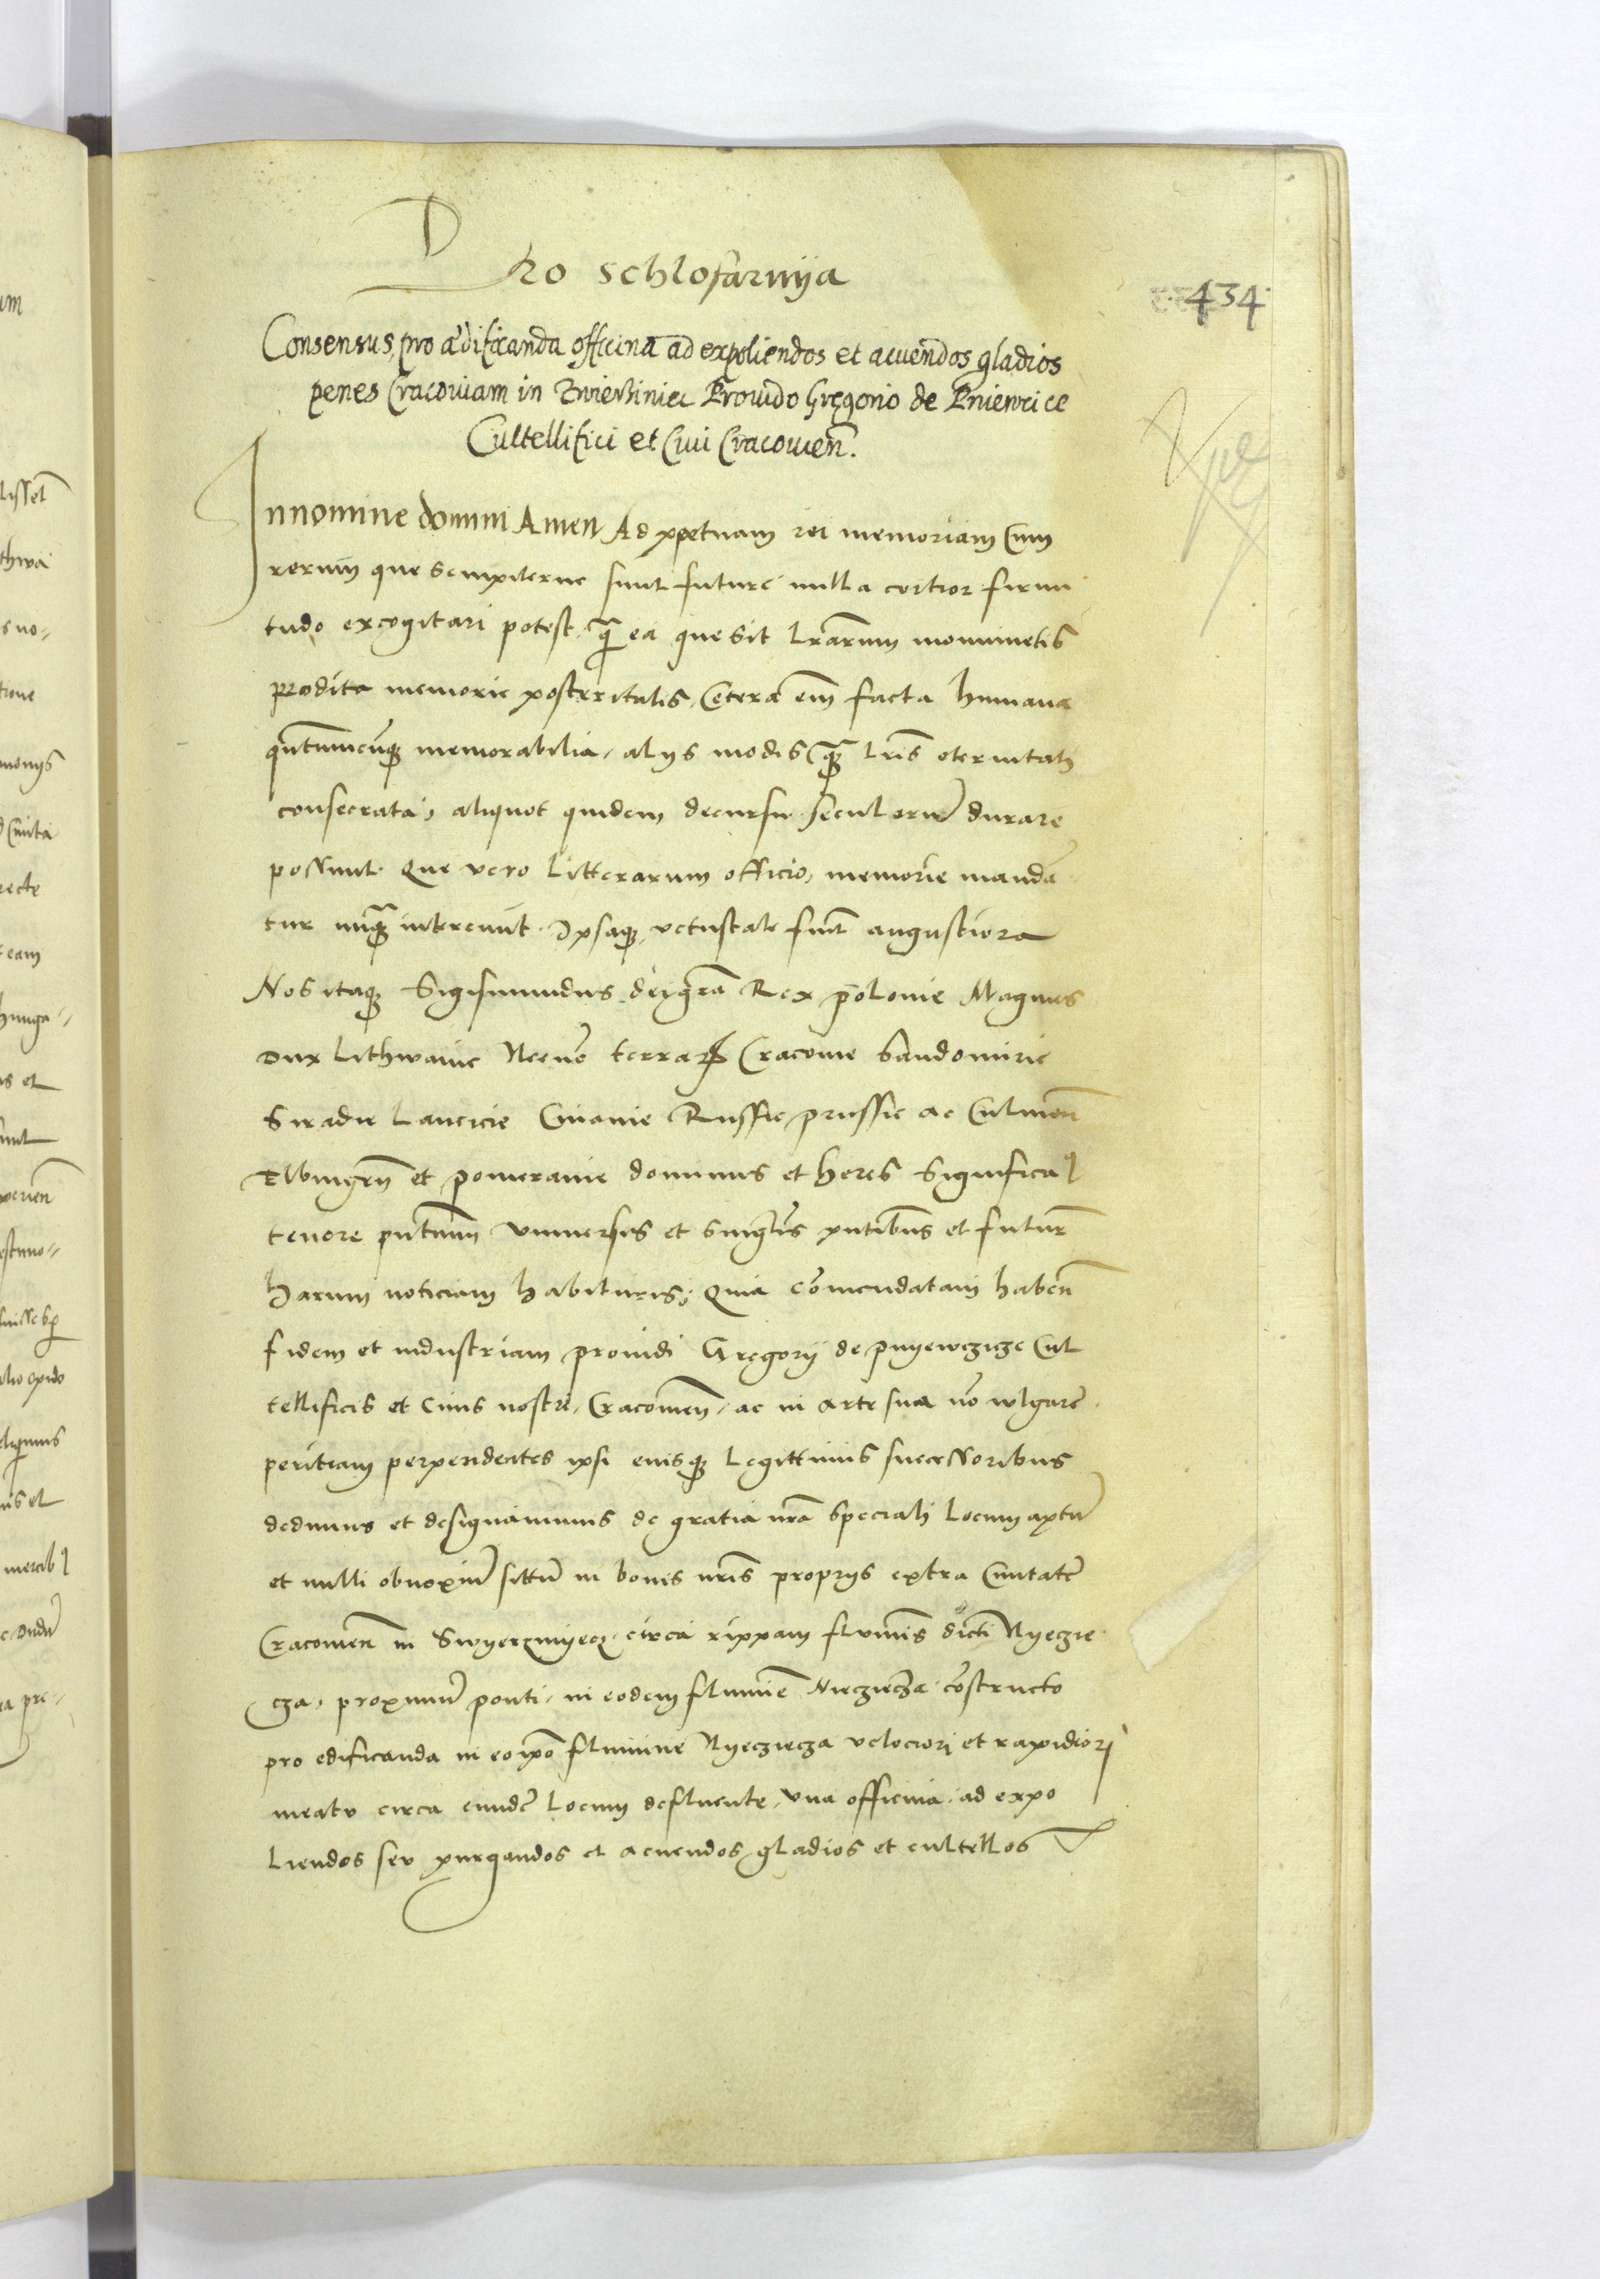 Pro schlofarnya
434
Consensus pro ædificanda officina ad expoliendos et acuendos gladios
penes Cracouiam in Zwierziniec Prouido Gregorio de Pniewcice
Cultellifici et Ciui Cracouien̄.
In nomine domini Amen Ad ꝑpetuam rei memoriam Cum
rerum que sempiterne sunt future nulla certior firmi
tudo excogitari potest, q̄ ea que sit lr̄arum monumētis
prodita memorie posteritatis, Cetera em̄ facta humana
qn̄tumcūqꝫ memorabilia, alijs modis q̄ꝫ lr̄is eternitati
consecrata, aliquot quidem decursu seculorū durare
possunt. Que vero litterarum officio, memorie mandā
tur nūqꝫ intereunt. Ipsaqꝫ vetustate fiūt angustiora
Nos itaqꝫ Sigismundus dei gr̄a Rex polonie Magnus
dux Lithwanie Necnō terraꝝ Cracouie Sandomirie
Siradie Lancicie Cuiauie Russie prussie ac Culmen̄
Elbingen̄ et pomeranie dominus et heres Significaꝰ
tenore pn̄tium vniuersis et singl̄is pn̄tibus et futur̄
harum noticiam habituris, Quia cōmendatam haben̄
fidem et industriam prouidi Gregorij de pnyewczicze Cul
tellificis et Ciuis nostri, Cracouien̄, ac in arte sua nō wlgarē
peritiam perpendentes ipsi eiusqꝫ legittimis successoribus
dedimus et designauimus de gratia nr̄a speciali locum aptū
et nulli obnoxiū sittū in bonis nr̄is proprijs extra Ciuitatē
Cracouien̄ in Swyerzinyecz, circa rippam fluminis dicti Nyeczie
cza, proximū ponti, in eodem fluminē Niecziecza cōstructo
pro edificanda in eo ip̄o flumine Nyecziecza velociori et rapidiori
meatu circa eundē locum defluente, vna officina, ad expo
liendos seu purgandos et acuendos gladios et cultellos